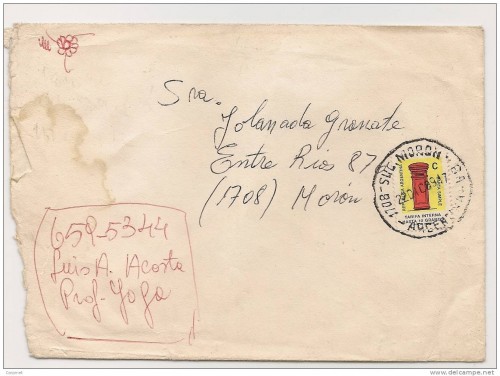 Sra.
Yolanada Granate
Entre Rios 87
(1708) Morón
1708-SUC. MORON
ARGENTINA
C
TARIFA INTERNA
HASTA 10 GRAMOS
659-5344
Luis A. Acosta
Prof. Yoga
delcampe.net